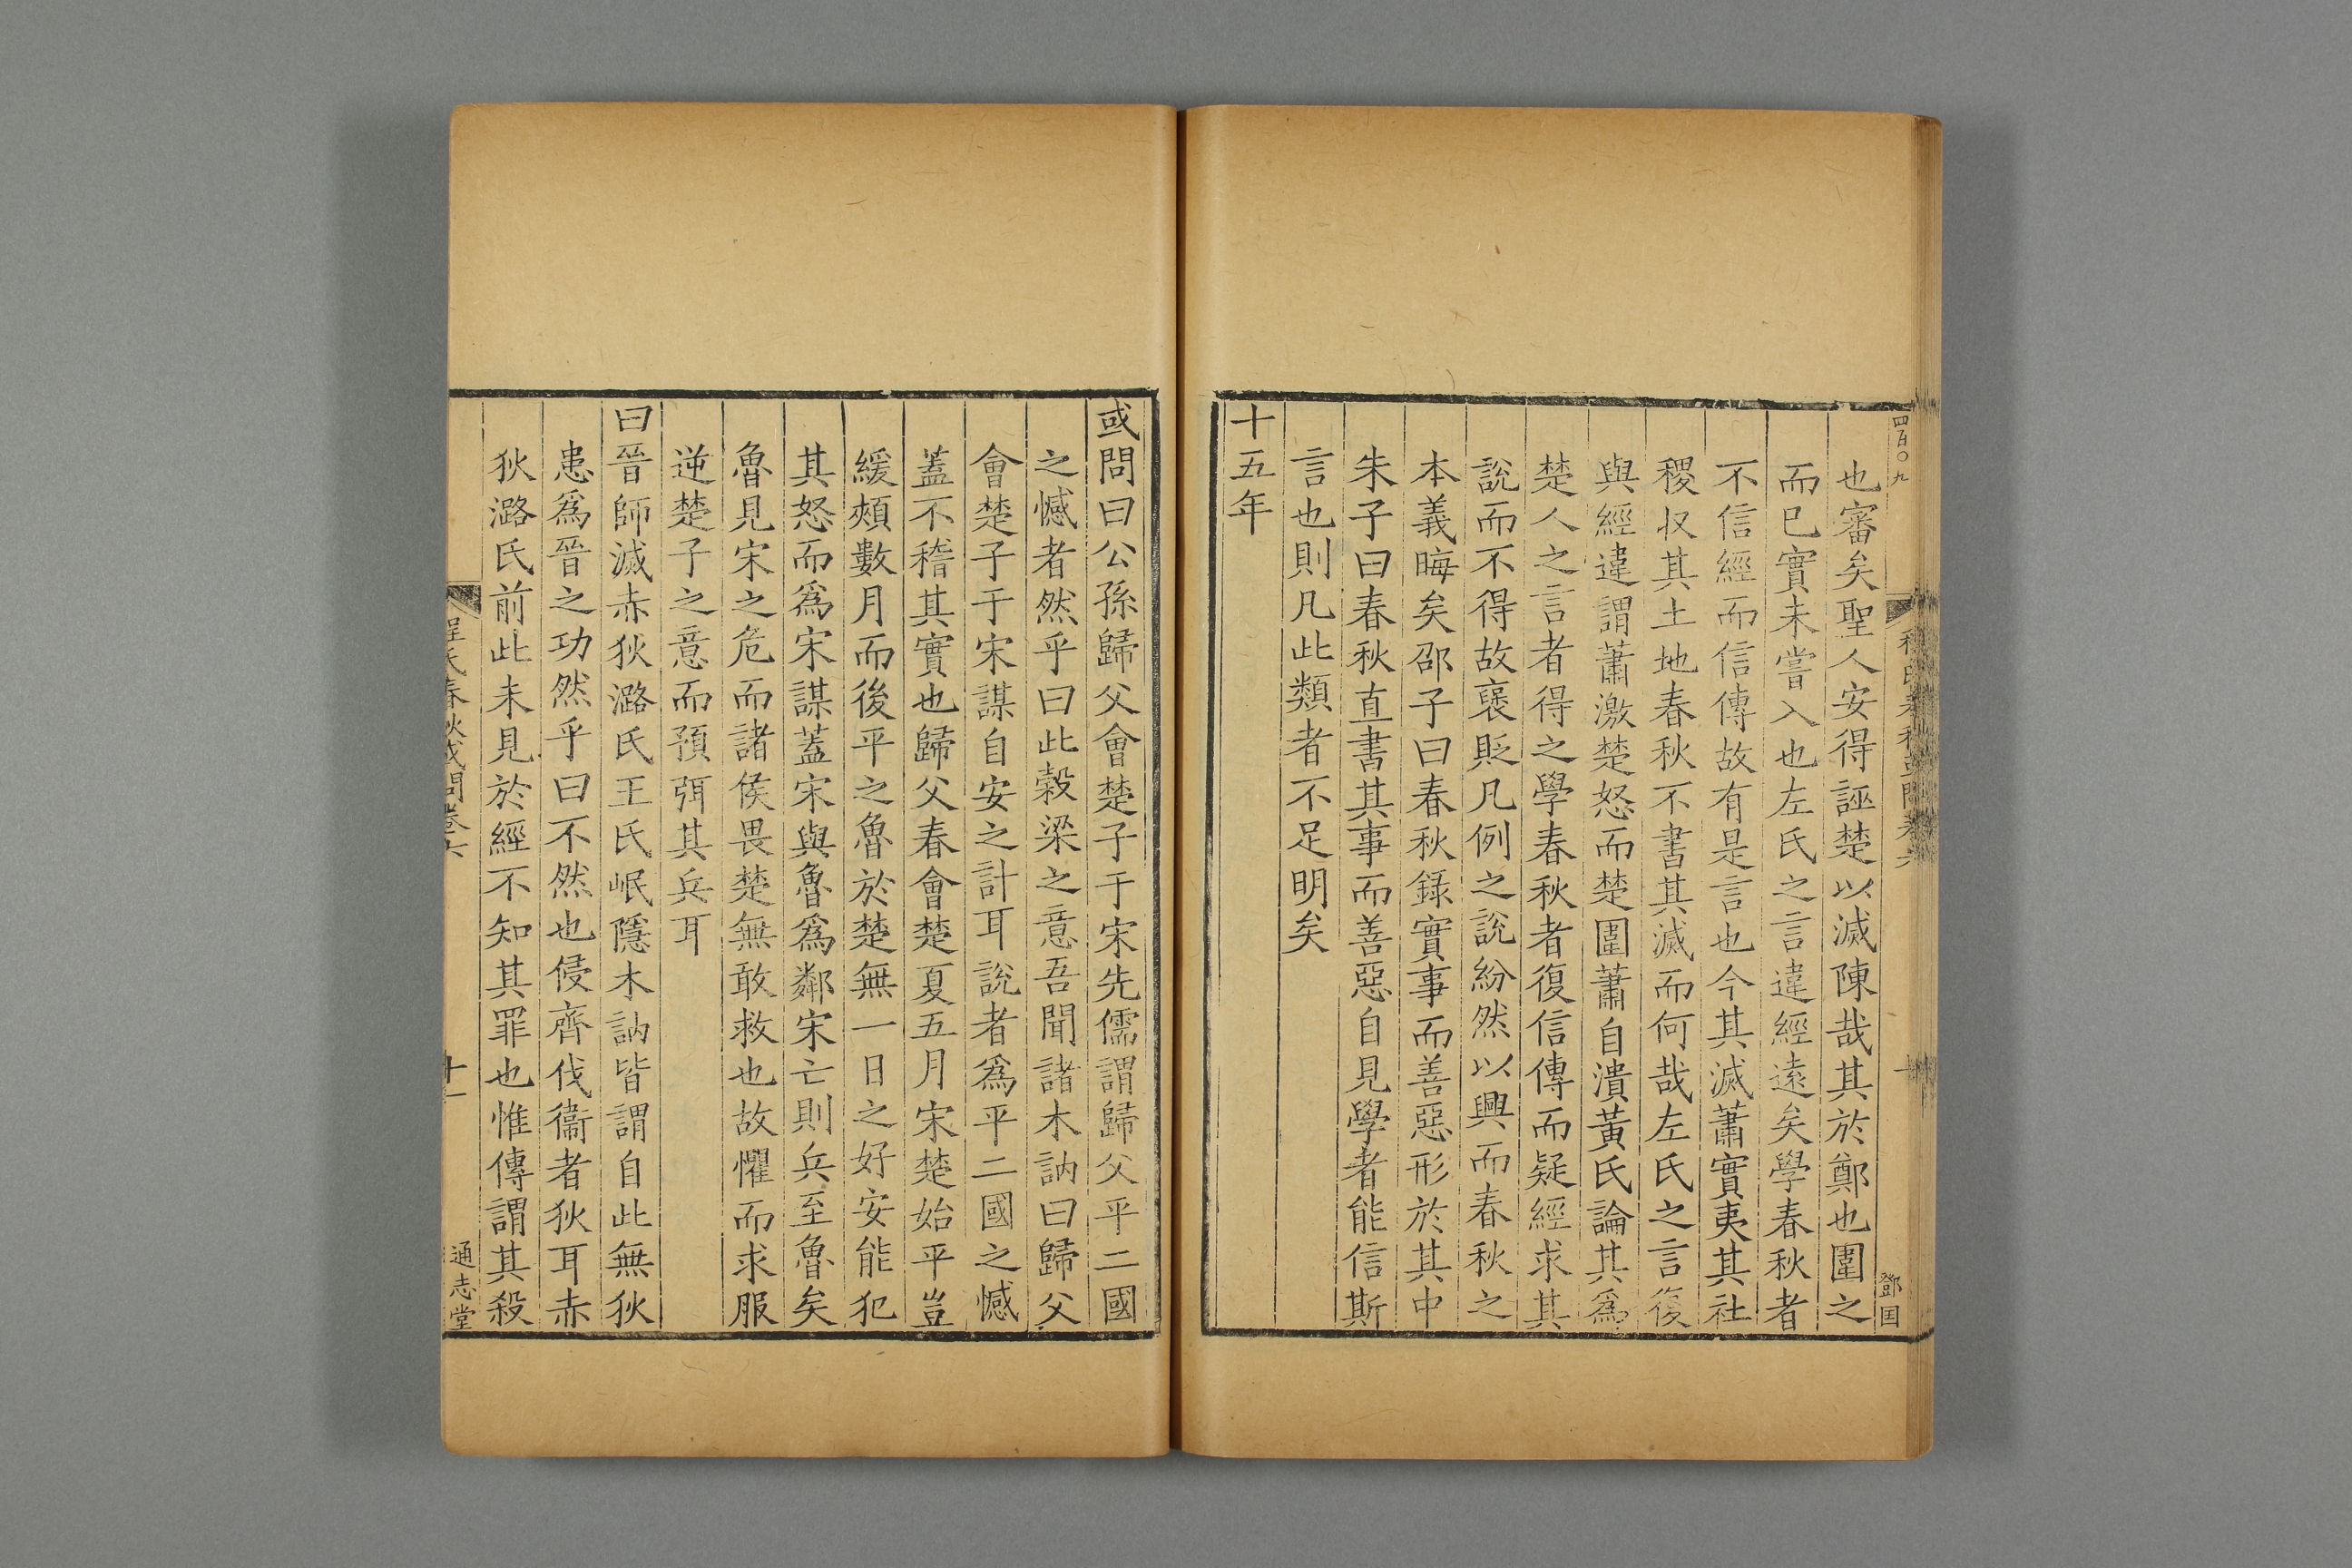 四百〇九
鄧国
也審矣聖人安得誣楚以滅陳哉其於鄭也圍之
而已實未嘗入也左氏之言違經遠矣學春秋者
不信經而信傳故有是言也今其滅蕭實夷其社
稷収其土地春秋不書其滅而何哉左氏之言復
與經違謂蕭激楚怒而楚圍蕭自潰黃氏論其爲
楚人之言者得之學春秋者復信傳而疑經求其
說而不得故襃貶凡例之說紛然以興而春秋之
本義晦矣邵子曰春秋録實事而善惡形於其中
朱子曰春秋直書其事而善惡自見學者能信斯
言也則凡此類者不足明矣
十五年
或問曰公孫歸父會楚子于宋先儒謂歸父平二國
之憾者然乎曰此穀梁之意吾聞諸木訥曰歸父
會楚子于宋謀自安之計耳說者爲平二國之憾
蓋不稽其實也歸父春會楚夏五月宋楚始平豈
緩頰數月而後平之魯於楚無一日之好安能犯
其怒而爲宋謀蓋宋與魯爲鄰宋亡則兵至魯矣
魯見宋之危而諸侯畏楚無敢救也故懼而求服
逆楚子之意而預弭其兵耳
曰晉師滅赤狄潞氏王氏岷隱木訥皆謂自此無狄
患爲晉之功然乎曰不然也侵齊伐衞者狄耳赤
狄潞氏前此未見於經不知其罪也惟傳謂其殺
程氏春秋或問卷六
十一
通志堂